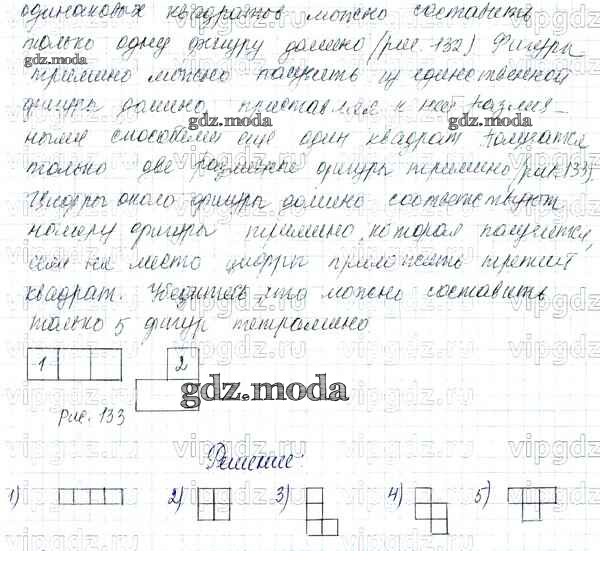 одинаковых квадратов можно составить
только одну фигуру домино (рис. 132) Фигуры
тримино можно получить из единственной
фигуры домино, приставляя к ней различ-
ными способами еще один квадрат получатся
только две различные фигуры тримино (рис. 133)
Цифры около фигуры домино соответствуют
номеру фигуры тримино, которая получается,
если на место цифры приложить третий
квадрат. Убедитесь, что можно составить
только 5 фигур тетрамино.
1 2
Рис. 133
Решение:
1) 2) 3) 4) 5)
gdz.moda
gdz.moda
gdz.moda
gdz.moda
vipgdz.ru